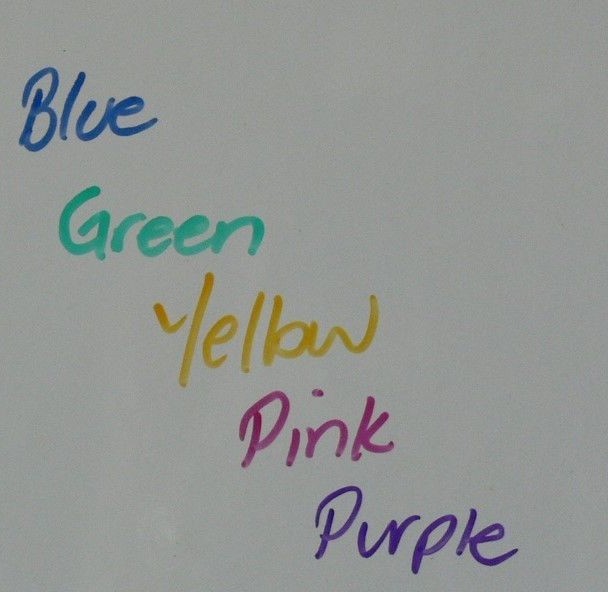 Blue
Green
Yellow
Pink
Purple